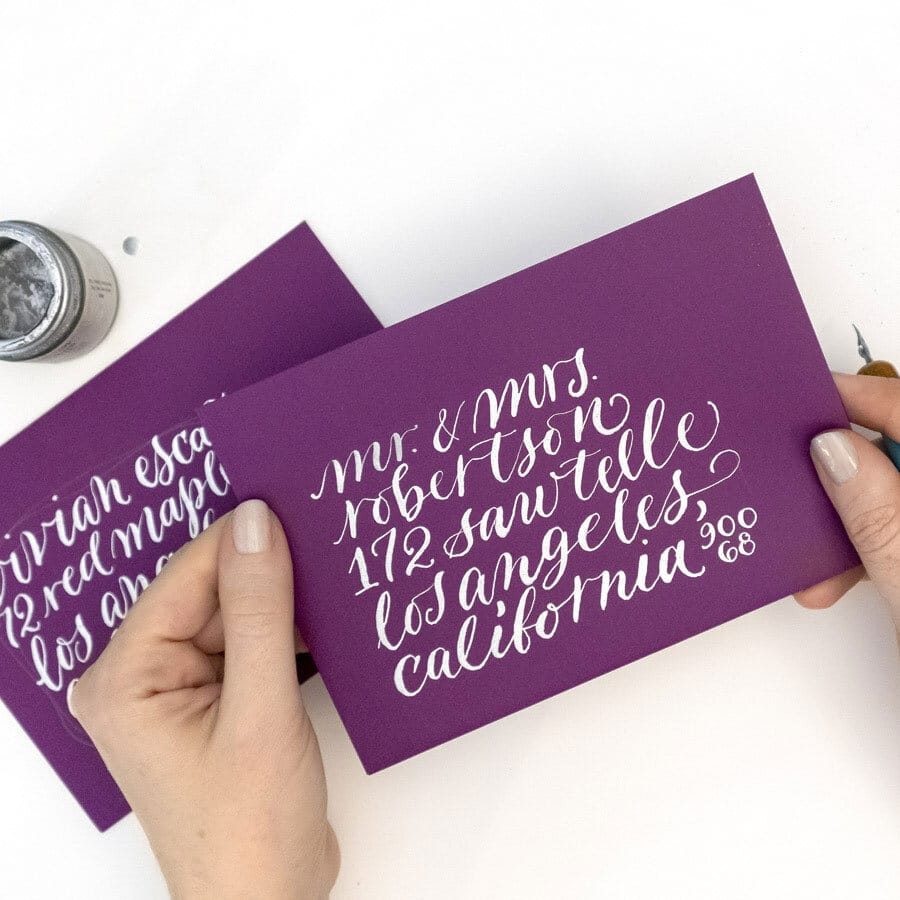 mr. & mrs.
robertson
172 sawtelle
los angeles,
california 900
68
vivian esca
72 red mapl
los ang